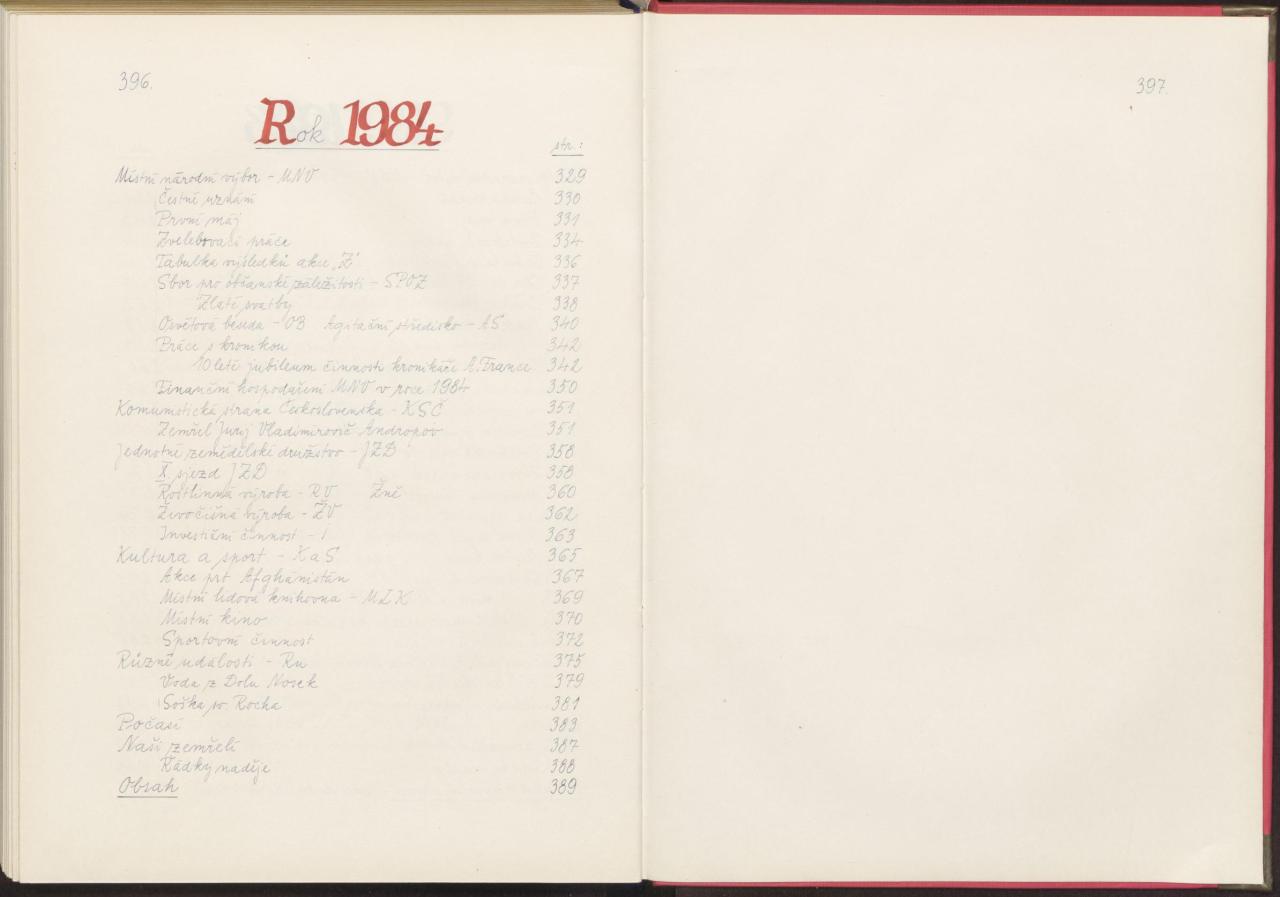 396.
Rok 1984
str.:
Místní národní výbor - MNV 329
Čestné uznání 330
První máj 331
Zvelebovací práce 334
Tabulka výsledků akce „Z" 336
Sbor pro občanské záležitosti - SPOZ 337
Zlaté svatby 338
Osvětová beseda - OB Agitační středisko - AS 340
Práce s kronikou 342
10leté jubileum činnosti kronikáře A. France 342
Finanční hospodaření MNV v roce 1984 350
Komunistická strana Československa - KSČ 351
Zemřel Jurij Vladimirovič Andropov 351
Jednotné zemědělské družstvo - JZD 358
X. sjezd JZD 358
Rostlinná výroba - RV Žně 360
Živočišná výroba - ŽV 362
Investiční činnost - I 363
Kultura a sport - KaS 365
Akce prt Afghánistán 367
Místní lidová knihovna - MLK 369
Místní kino 370
Sportovní činnost 372
Různé události - Ru 375
Voda z Dolu Nosek 379
Soška sv. Rocha 381
Počasí 383
Naši zemřelí 387
Řádky naděje 388
Obsah 389
397.